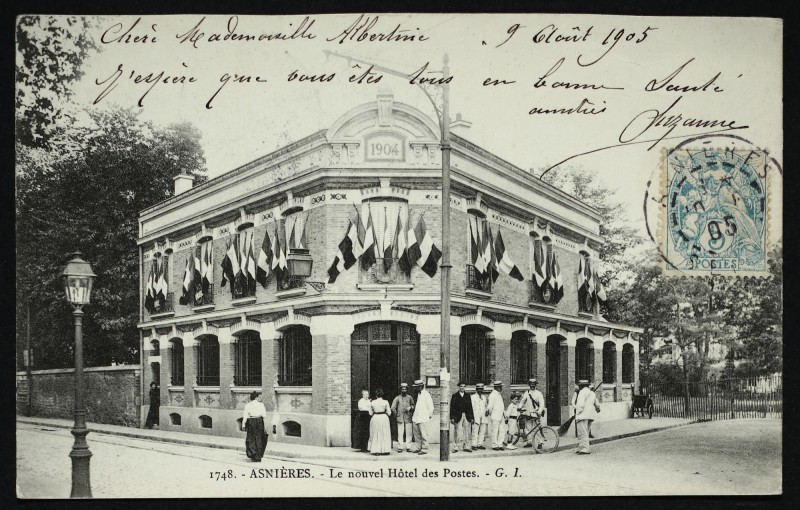 Chère Mademoiselle Albertine 9 Août 1905
J'espère que vous êtes tous en bonne Santé
amitiés Suzanne
1904
ASNIÈRES
05
5
POSTES
1748. - ASNIÈRES. - Le nouvel Hôtel des Postes. - G. I.